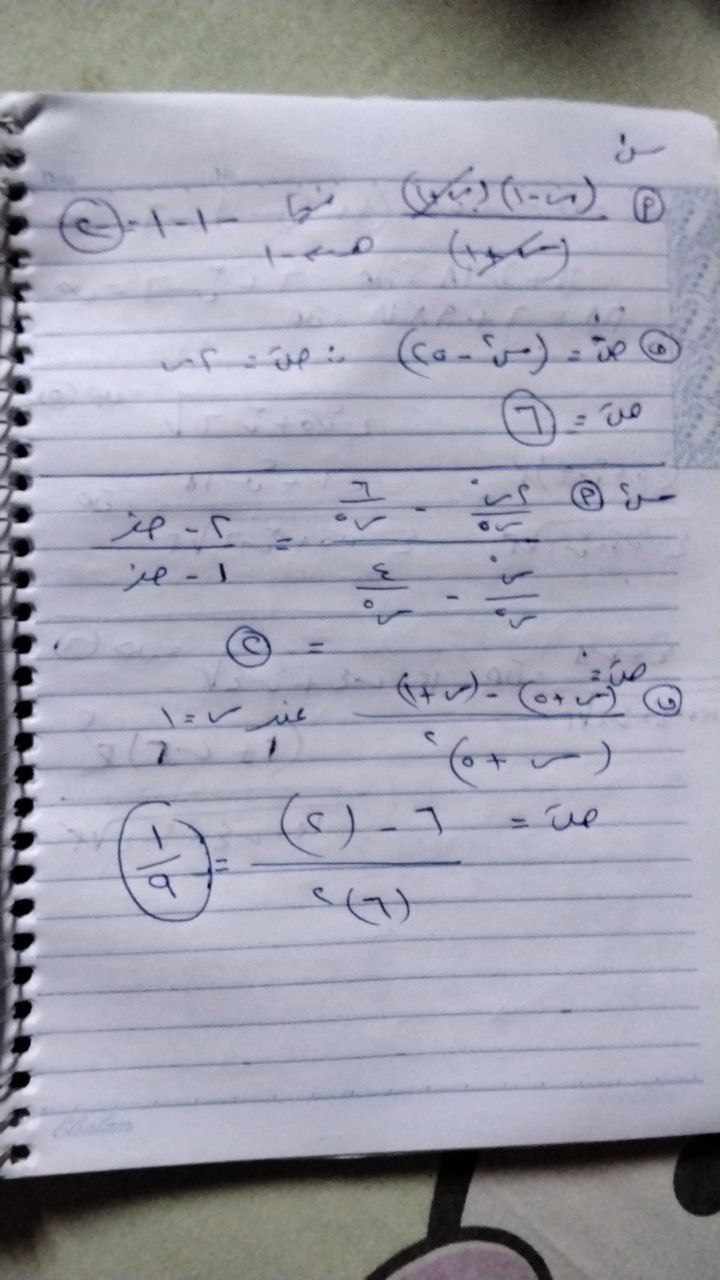 س١
أ (س-١)(س+١) / (س+١) نهـا س←-١ -١-١=-٢
ب صَ = (س٢ - ٢٥) ∴ صَ = ٢س
صَ = ٦
س٢ أ (٢س٥/س٥ - ٦/س٥) / (س٥/س٥ - ٤/س٥) = (٢ - صفر) / (١ - صفر)
= ٢
ب صَ = (س+٥) - (س+١) / (س + ٥)٢ عند س=١
صَ = ٦ - (٢) / (٦)٢ = ١/٩